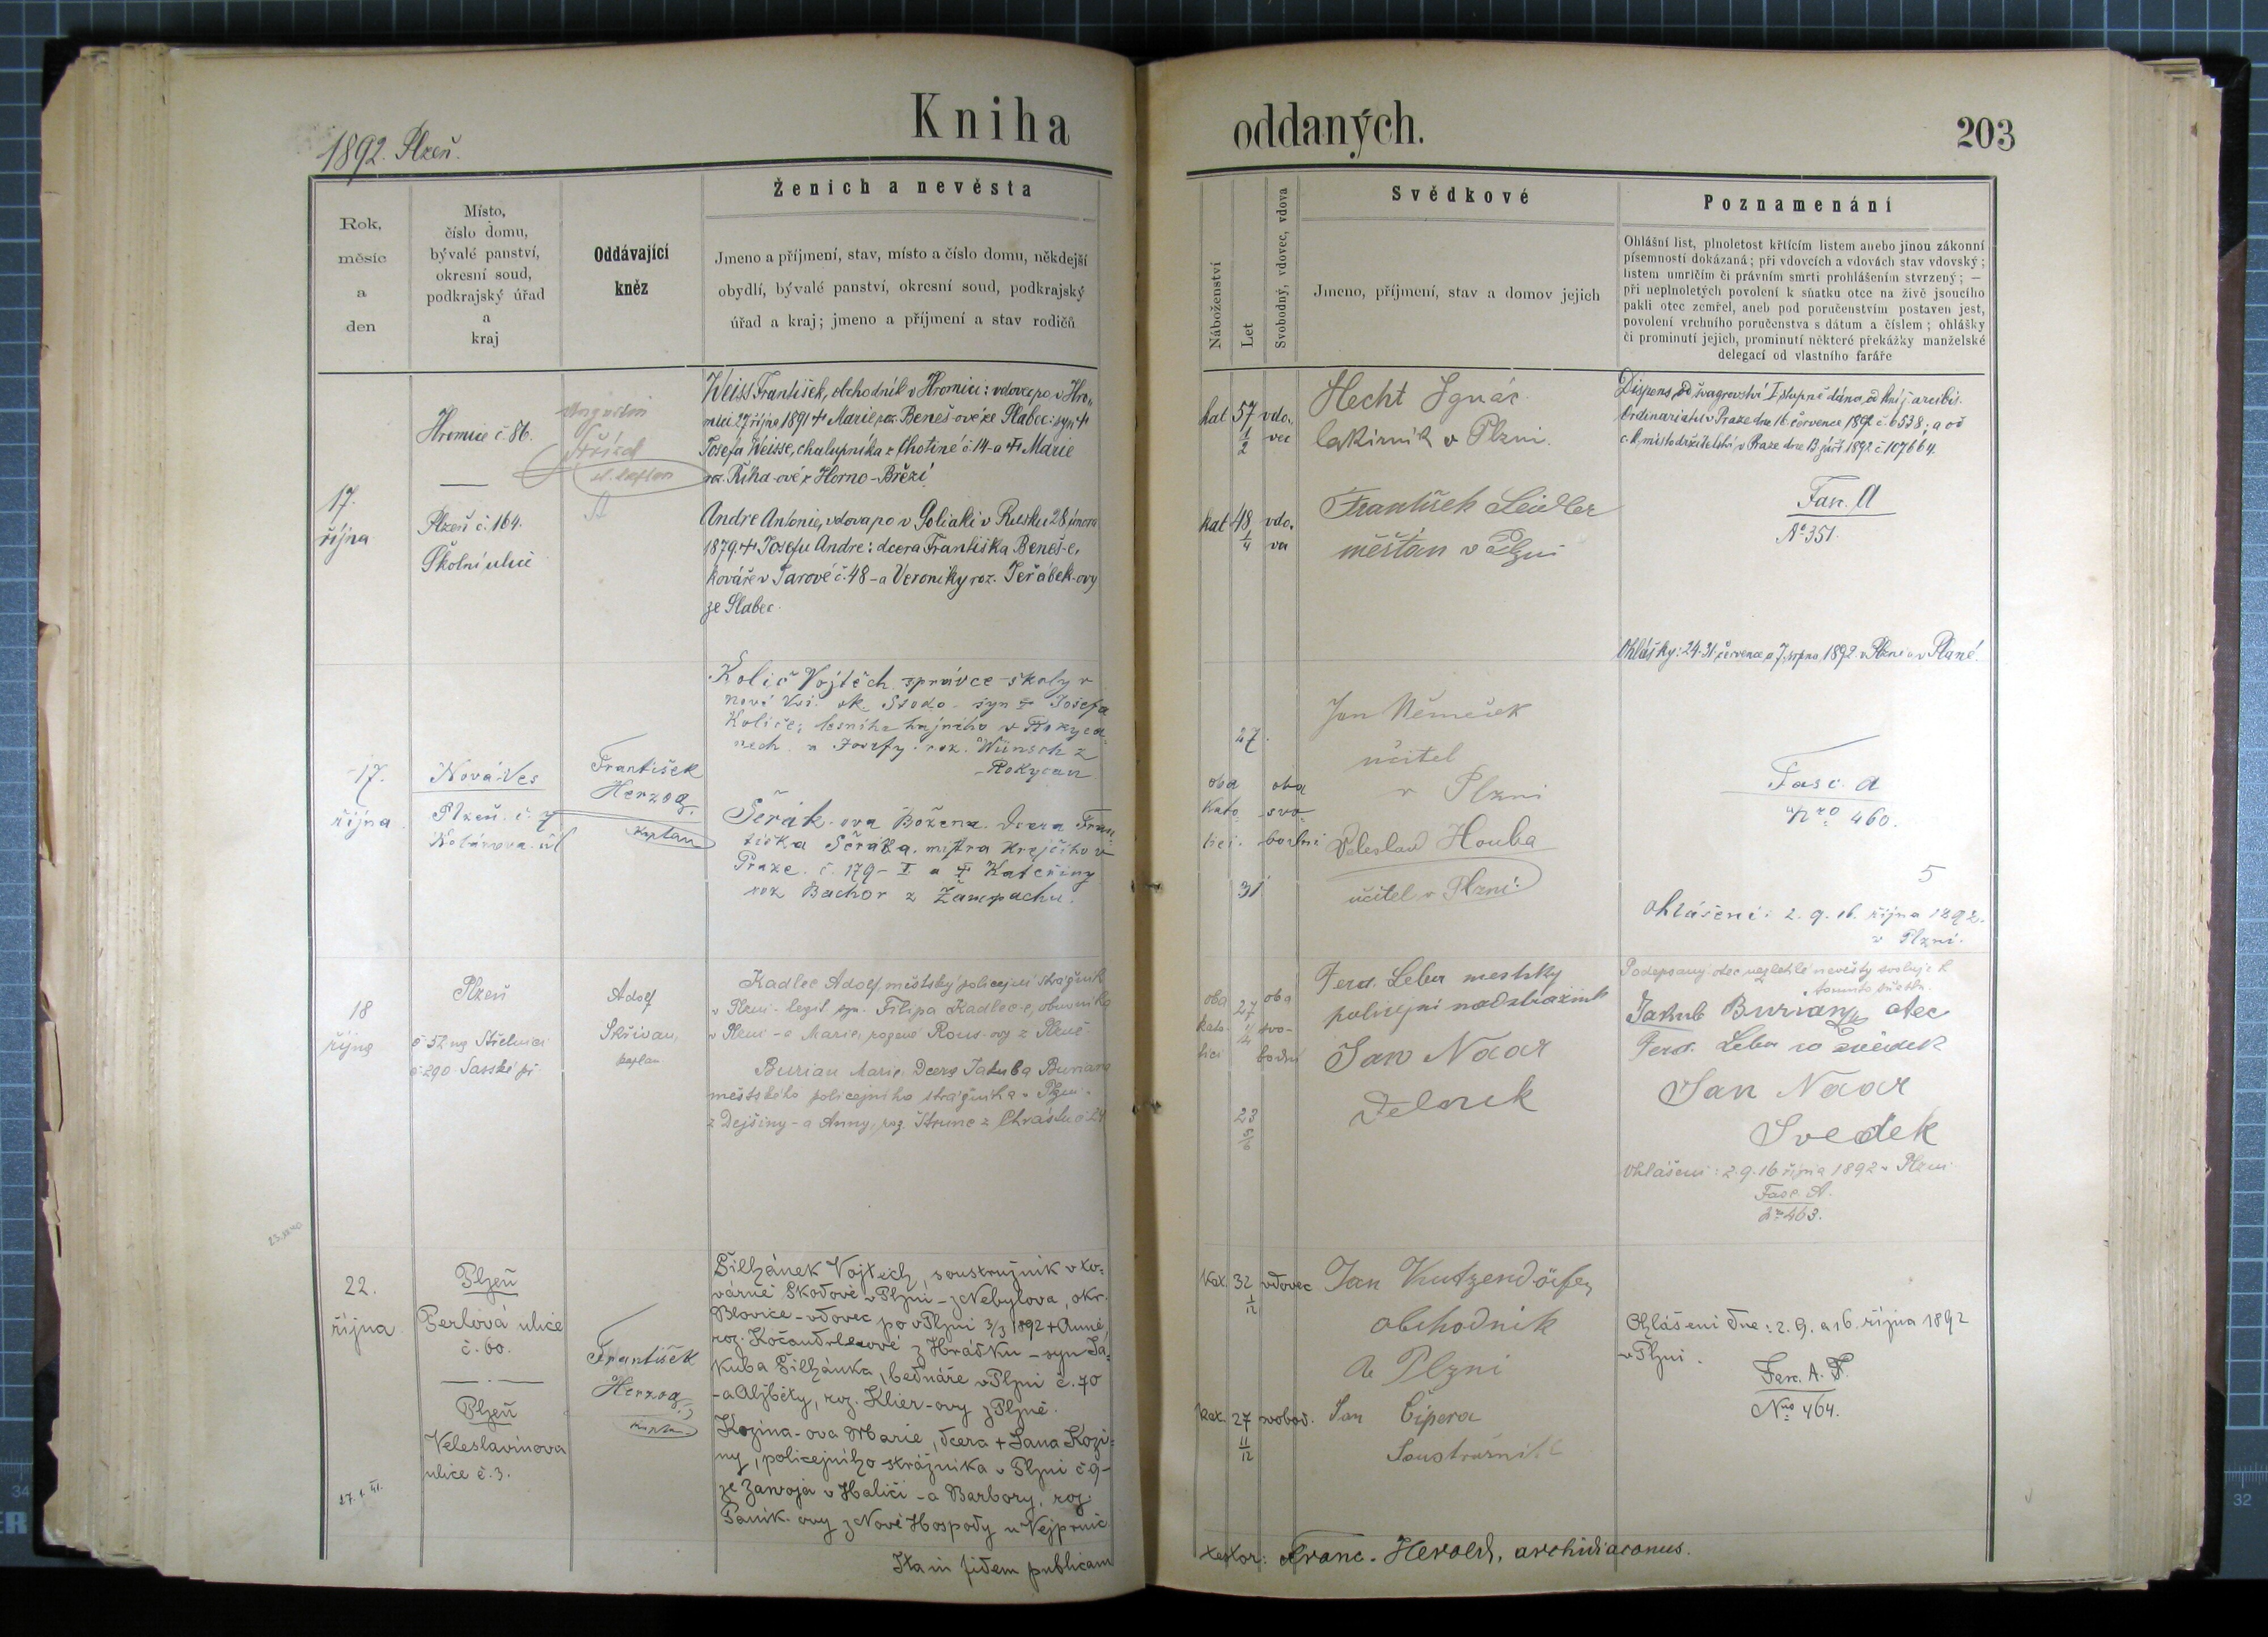 Kniha
oddaných.
203
1892. Plzeň.
Rok,
měsíc
a
den
Místo,
číslo domu,
bývalé panství,
okresní soud,
podkrajský úřad
a
kraj
Oddávající
kněz
Ženich a nevěsta
Jmeno a příjmení, stav, místo a číslo domu, někdejší
obydlí, bývalé panství, okresní soud, podkrajský
úřad a kraj; jmeno a příjmení a stav rodičů
Náboženství
Let
Svobodný, vdovec, vdova
Svědkové
Jmeno, příjmení, stav a domov jejich
Poznamenání
Ohlášní list, plnoletost křticím listem anebo jinou zákonní
písemností dokázaná; při vdovcích a vdovách stav vdovský;
listem umrlčím či právním smrti prohlášením stvrzený; —
při neplnoletých povolení k sňatku otce na živě jsoucího
pakli otec zemřel, aneb pod poručenstvím postaven jest,
povolení vrchního poručenstva s dátum a číslem; ohlášky
či prominutí jejich, prominutí některé překážky manželské
delegací od vlastního faráře
17.
října
Hromice č. 86.
Plzeň č. 164.
Školní ulice
Augustin
Weiss František, obchodník v Hromici: vdovec po v Hro„
mici 27 října 1891 + Marie roz. Beneš-ové ze Slabec: syn +
Josefa Weisse, chalupníka z Chotiné č. 14 - a + Marie
roz. Říha-ové z Horno-Břězí.
Andre Antonie, vdova po v Goliaki v Rusku 28 února
1879 + Josefu Andre: dcera Františka Beneš-e,
kováře v Jarové č. 48 - a Veroniky roz. Jeřábek-ovy
ze Slabec.
kat 57 1/2 vdo„
vec
kat 48 1/4 vdo„
va
Hecht Ignác
lakírník v Plzni.
František Seidler
měšťan v Plzni
Dispens od švagrovství I stupně dána od kníž. arcibis.
Ordinariatu v Praze dne 16. července 1892 č. 6538; a od
c. k. místodržitelství v Praze dne 13 září 1892 č. 107664.
Fasc. A
No 351.
Ohlášky: 24. 31. července a 7. srpna 1892 v Plzni a v Plané.
17.
října
Nová-Ves
Plzeň č. 7
František
Herzog,
kaplan
Količ Vojtěch, správce školy v
Nové Vsi. ok. Stodo - syn + Josefa
Količe, lesního hajného v Rokyca„
nech a Josefy roz. Wünsch z
Rokycan
Šerák-ova Božena. dcera Fran„
tiška Šeráka. mistra krejčího v
Praze. č. 179 - I a + Kateřiny
roz Bachor z Žampachu.
oba
kato
lici.
27.
31
oba
svo
bodni
Jan Němeček
učitel
v Plzni
Veleslav Houba
učitel v Plzni
Fasc. A
Nro 460.
5
Ohlášení: 2. 9. 16. října 1892.
v Plzni.
18
října
Plzeň
č 52 na Střelnici
č 290 Saské př
Adolf
Skřivan,
kaplan
Kadlec Adolf městský policejní strážník
v Plzni - legit. syn Filipa Kadlece, obuvníka
v Plzni - a Marie, rozené Rous-ovy z Plzně.
Burian Marie. Dcera Jakuba Buriana
městského policejního strážníka v Plzni
z Dejšiny - a Anny, roz. Štrunc z Chrástu č 24
oba
kato-
lici
27
23 5/6
oba
svo-
bodní
Ferd. Leber mestsky
policejní nadstražnik
Jan Naar
Delnik
Podepsaný otec nezletilé nevěsty svoluje k
tomuto sňatku.
Jakub Burian otec
Ferd. Leber co svědek
Jan Naar
Svedek
Ohlášení: 2. 9. 16 října 1892 v Plzni
Fasc. A.
No 463.
22.
října
Plzeň
Perlová ulice
č. 60.
Plzeň
Veleslavínova
ulice č. 3.
František
Herzog,
kaplan
Šilhánek Vojtěch, soustružník v to=
várně Škodově v Plzni - z Nebylova, okr.
Blovice - vdovec po v Plzni 3/3 1892 + Anně
roz. Kočandrleové z Hrádku - syn Ja=
kuba Šilhánka, bednáře v Plzni č. 70
- a Alžběty, roz. Klier-ovy z Plzně.
Kozina-ova Marie, dcera + Jana Kozi=
ny, policejního strážníka v Plzni č 9 -
ze Zawoja v Haliči - a Barbory, roz.
Paník-ovy z Nové Hospody u Vejprnic
kat. 32 1/12 vdovec
kat. 27 11/12 svobod.
Jan Kutzendörfer
obchodnik
v Plzni
Jan Čipera
Soustružnik
Ohlášení dne: 2. 9. a 16. října 1892
v Plzni.
Fasc. A.
Nro 464.
Ita in fidem publicam
testor: Franc. Herold, archidiaconus.